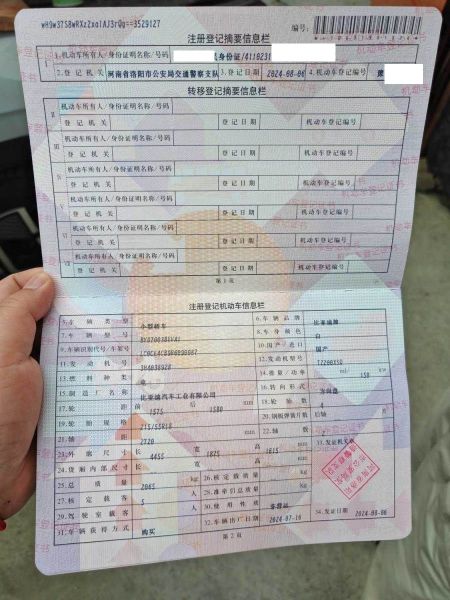 wH9w37S8WRXz2xalAJ3rQg==3529127
编号:
注册登记摘要信息栏
1.机动车所有人/身份证明名称/号码 身份证/411023
2.登记机关 河南省洛阳市公安局交通警察支队 3.登记日期 2024-08-06 4.机动车登记编号 豫
转移登记摘要信息栏
Ⅱ 机动车所有人/身份证明名称/号码
登记机关 登记日期 机动车登记编号
Ⅲ 机动车所有人/身份证明名称/号码
登记机关 登记日期 机动车登记编号
Ⅳ 机动车所有人/身份证明名称/号码
登记机关 登记日期 机动车登记编号
Ⅴ 机动车所有人/身份证明名称/号码
登记机关 登记日期 机动车登记编号
Ⅵ 机动车所有人/身份证明名称/号码
登记机关 登记日期 机动车登记编号
Ⅶ 机动车所有人/身份证明名称/号码
登记机关 登记日期 机动车登记编号
第1页
注册登记机动车信息栏
5.车辆类型 小型轿车 6.车辆品牌 比亚迪牌
7.车辆型号 8.车身颜色 白
9.车辆识别代号/车架号 10.国产/进口 国产
11.发动机号 3H4036928 12.发动机型号 TZ200XSQ
13.燃料种类 电 14.排量/功率 ml/ 150 kw
15.制造厂名称 比亚迪汽车工业有限公司 16.转向形式 方向盘
17.轮距 前 1575 后 1580 mm 18.轮胎数 4
19.轮胎规格 215/55R18 20.钢板弹簧片数 后轴
21.轴距 2720 mm 22.轴数 2
23.外廓尺寸 长 4455 宽 1875 高 1615 mm 33.发证机关章
24.货厢内部尺寸 长 宽 高 mm
25.总质量 2065 kg 26.核定载质量 kg
27.核定载客 5 人 28.准牵引总质量 kg
29.驾驶室载客 人 30.使用性质 非营运
31.车辆获得方式 购买 32.车辆出厂日期 2024-07-10 34.发证日期 2024-08-06
第2页